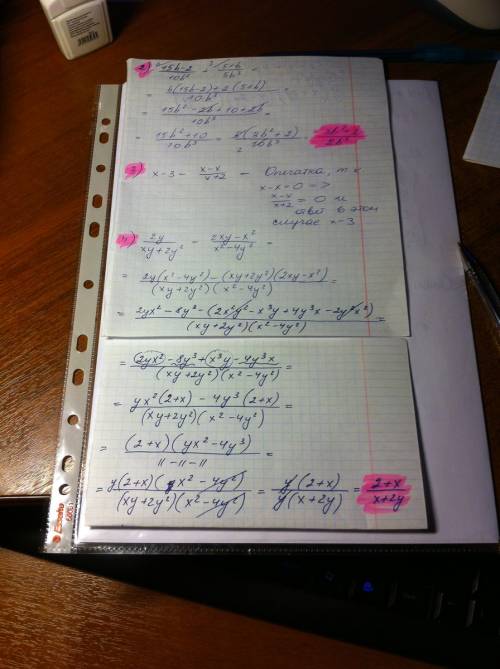 2) (15b-2)/(10b²) + (5+b)/(5b³) =
= (b(15b-2)+2(5+b))/(10b³) =
= (15b²-2b+10+2b)/(10b³) =
= (15b²+10)/(10b³)
3) x-3 - (x-x)/(x+2) - Опечатка, т к
x-x=0 =>
(x-x)/(x+2) = 0 и
ответ в этом
случае x-3
4) (2y)/(xy+2y²) - (2xy-x²)/(x²-4y²) =
= (2y(x²-4y²)-(xy+2y²)(2xy-x²))/((xy+2y²)(x²-4y²)) =
= (2yx²-8y³-(2x²y²-x³y+4y³x-2y²x²))/((xy+2y²)(x²-4y²)) =
= (2yx²-8y³+x³y-4y³x)/((xy+2y²)(x²-4y²)) =
= (yx²(2+x)-4y³(2+x))/((xy+2y²)(x²-4y²)) =
= ((2+x)(yx²-4y³))/(11-11-11) =
= (y(2+x)(x²-4y²))/((xy+2y²)(x²-4y²)) = (y(2+x))/(y(x+2y)) = (2+x)/(x+2y)